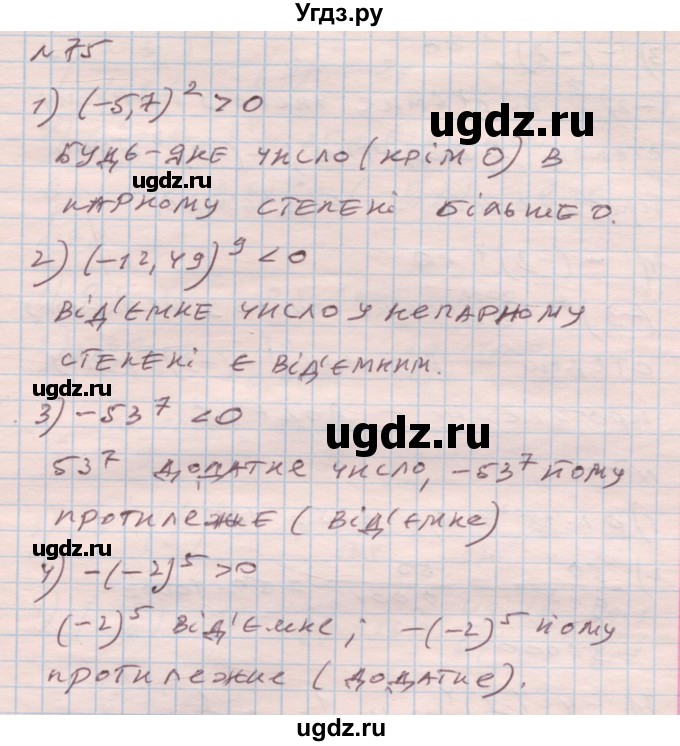 Угдз.ру
№75
1) (-5,7)² > 0
ugdz.ru
будь-яке число (крім 0) в
ugdz.ru
парному степені більше 0.
2) (-12,49)⁹ < 0
від'ємне число у непарному
степені є від'ємним.
ugdz.ru
3) -53⁷ < 0
ugdz.ru
53⁷ додатнє число, -53⁷ йому
ugdz.ru
протилежне (від'ємне)
4) -(-2)⁵ > 0
ugdz.ru
(-2)⁵ від'ємне; -(-2)⁵ йому
протилежне (додатне).
ugdz.ru
ugdz.ru